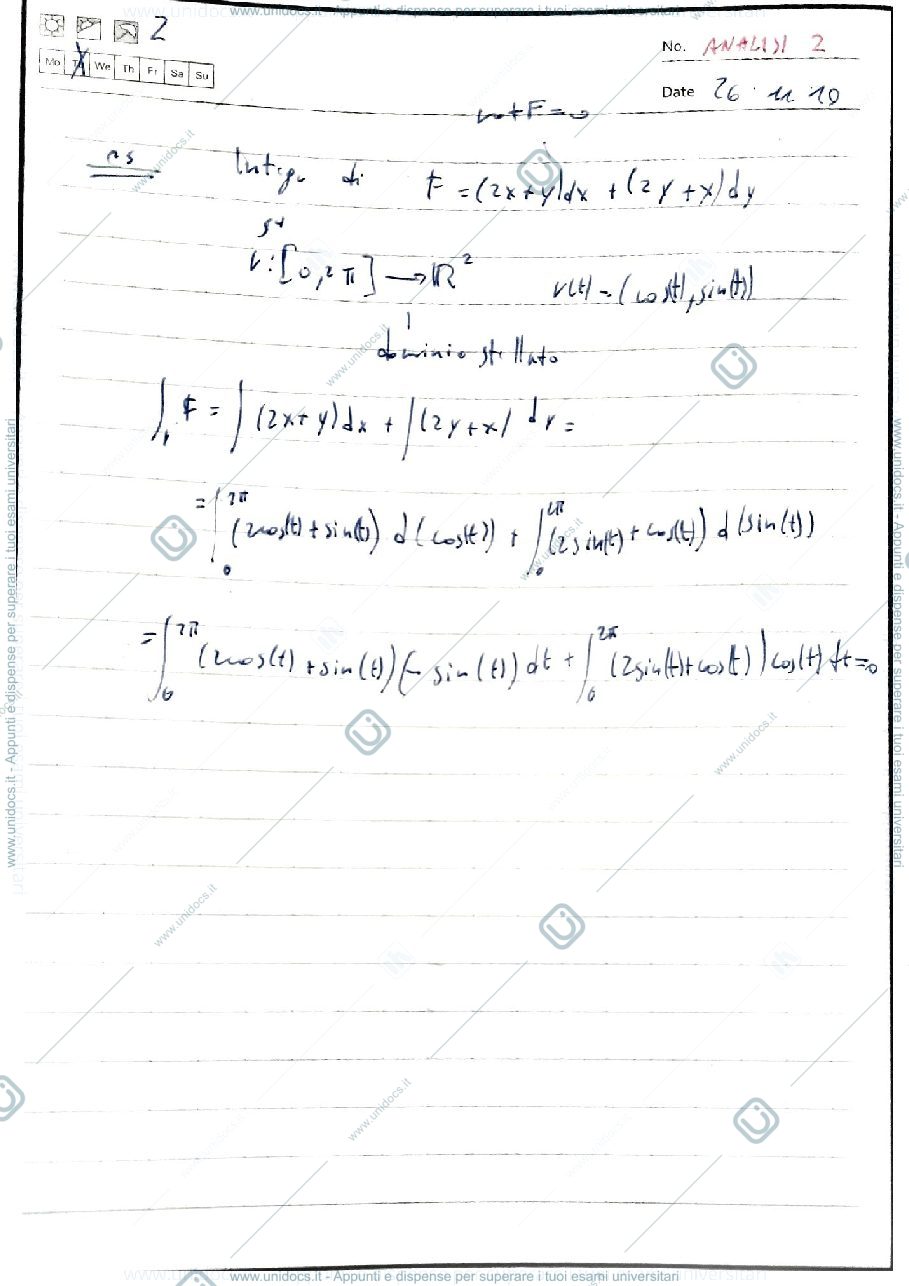 www.unidocs.it - Appunti e dispense per superare i tuoi esami universitari
2
No. ANALISI 2
Mo Tu We Th Fr Sa Su
Date 26 11 10
rot F = 0
es Integr di F = (2x+y)dx + (2y+x)dy
su
r:[0,2π] → ℝ² r(t) = (cos(t), sin(t))
dominio stellato
∫_r F = ∫(2x+y)dx + ∫(2y+x) dy =
= ∫_0^{2π} (2cos(t)+sin(t)) d(cos(t)) + ∫_0^{2π} (2sin(t)+cos(t)) d(sin(t))
= ∫_0^{2π} (2cos(t)+sin(t))(-sin(t)) dt + ∫_0^{2π} (2sin(t)+cos(t)) cos(t) dt = 0
www.unidocs.it
www.unidocs.it
www.unidocs.it
www.unidocs.it
www.unidocs.it
www.unidocs.it
www.unidocs.it - Appunti e dispense per superare i tuoi esami universitari
www.unidocs.it - Appunti e dispense per superare i tuoi esami universitari
www.unidocs.it - Appunti e dispense per superare i tuoi esami universitari